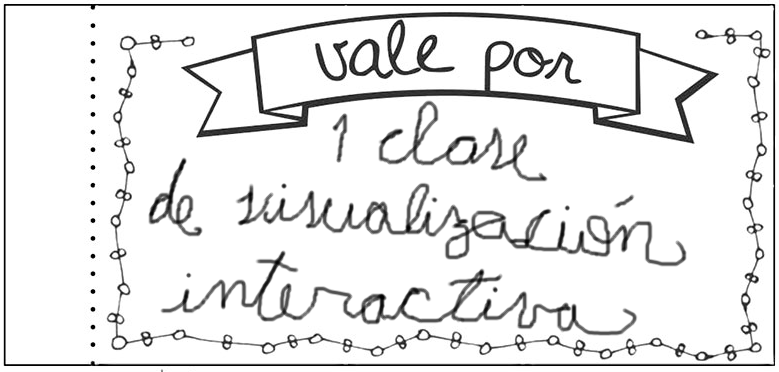 vale por
1 clase
de visualización
interactiva